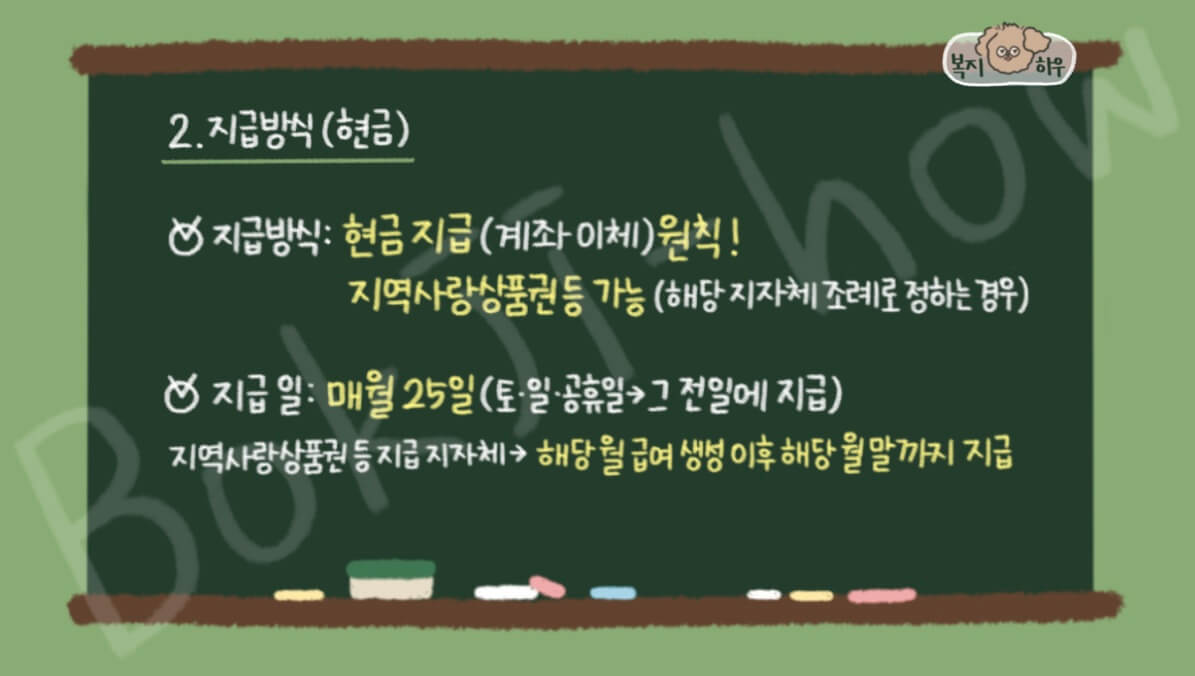 복지 하우
2. 지급방식 (현금)
지급방식: 현금 지급 (계좌 이체) 원칙!
지역사랑상품권 등 가능 (해당 지자체 조례로 정하는 경우)
지급 일: 매월 25일 (토·일·공휴일→그 전일에 지급)
지역사랑상품권 등 지급 지자체→ 해당 월 급여 생성 이후 해당 월 말까지 지급
Bokji-how